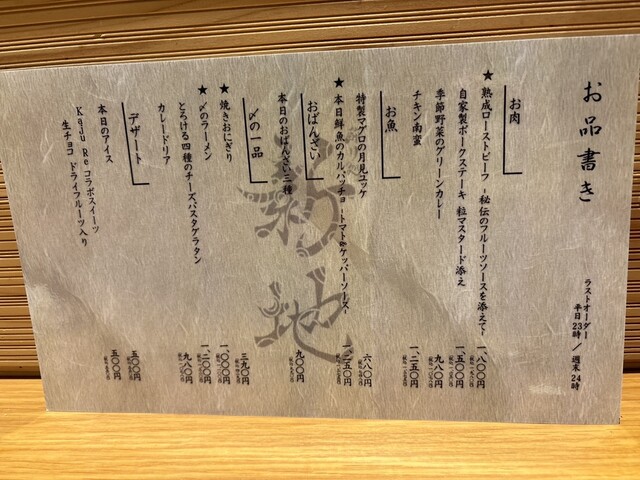 お品書き
ラストオーダー
平日23時／週末24時
お肉
★熟成ローストビーフ -秘伝のフルーツソースを添えて- 一八〇〇円
自家製ポークステーキ 粒マスタード添え 一五〇〇円
季節野菜のグリーンカレー 九八〇円
チキン南蛮 一二五〇円
お魚
特製マグロの月見ユッケ 六八〇円
★本日鮮魚のカルパッチョ -トマト&ケッパーソース- 一二五〇円
おばんざい
本日のおばんざい三種 九〇〇円
〆の一品
★焼きおにぎり 三九〇円
★〆のラーメン 一〇〇〇円
とろける四種のチーズパスタグラタン 一二〇〇円
カレードリア 九八〇円
デザート
本日のアイス 五五〇円
Keju Re コラボスイーツ
生チョコ ドライフルーツ入り 五〇〇円
新地